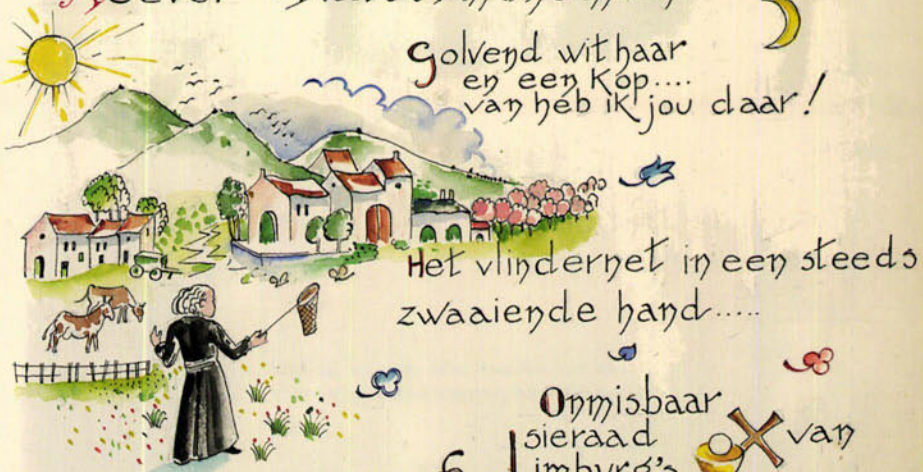 Golvend wit haar
en een Kop....
van heb ik jou daar!
Het vlindernet in een steeds
zwaaiende hand.....
Onmisbaar
sieraad van
Limburg's